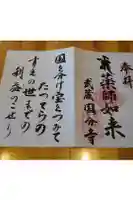 奉拝
薬師如来
武蔵国分寺
国を分け宝をつみて
たつてらの
すゑの世までの
利益のこせり